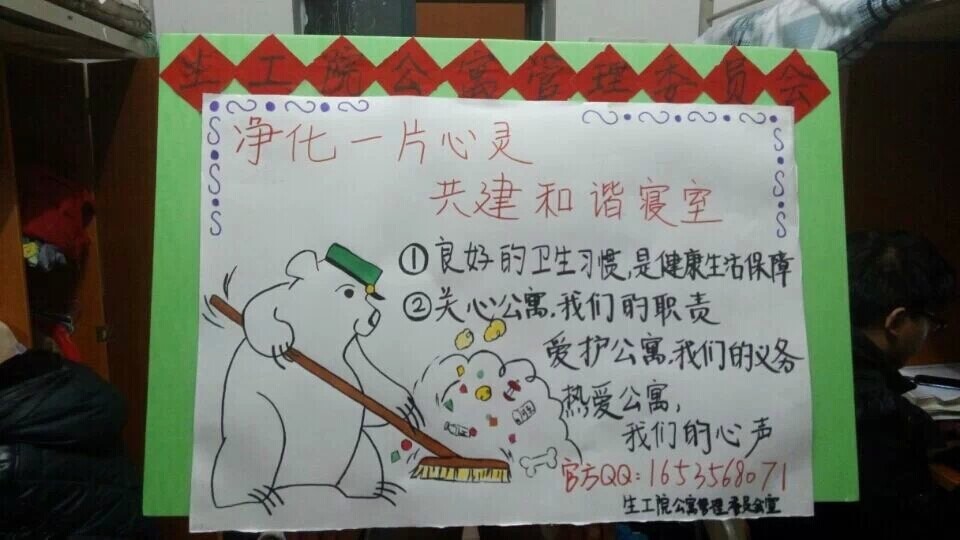 生工院公寓管理委员会
净化一片心灵
共建和谐寝室
①良好的卫生习惯,是健康生活保障
②关心公寓,我们的职责
爱护公寓,我们的义务
热爱公寓,
我们的心声
官方QQ:1653568071
生工院公寓管理委员会宣